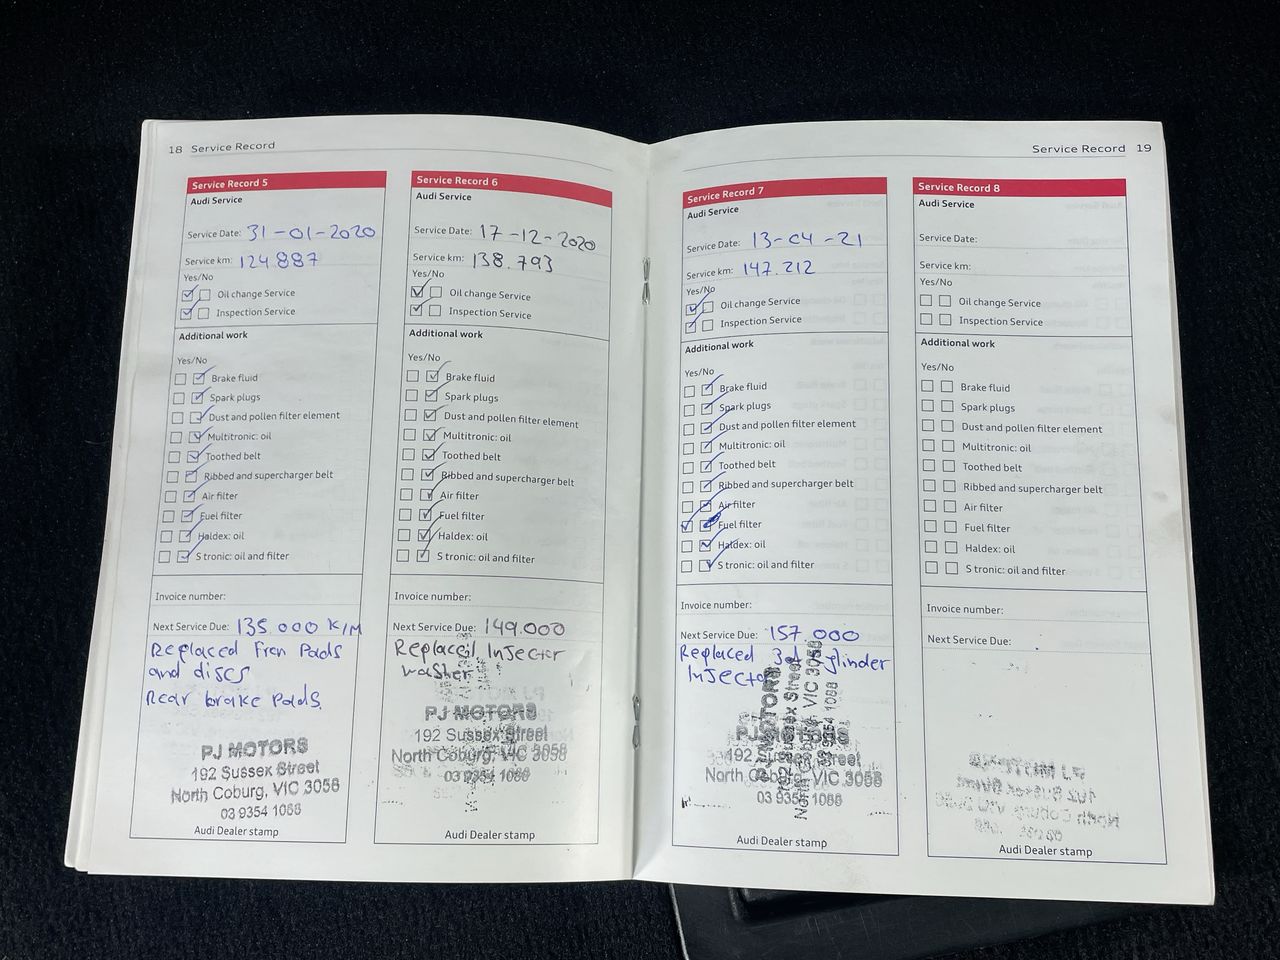 18 Service Record
Service Record 5
Audi Service
Service Date: 31-01-2020
Service km: 124.887
Yes/No
Oil change Service
Inspection Service
Additional work
Yes/No
Brake fluid
Spark plugs
Dust and pollen filter element
Multitronic: oil
Toothed belt
Ribbed and supercharger belt
Air filter
Fuel filter
Haldex: oil
S tronic: oil and filter
Invoice number:
Next Service Due: 135.000 K/M
Replaced Fren Pads
and discs
Rear brake Pads.
PJ MOTORS
192 Sussex Street
North Coburg, VIC 3058
03 9354 1088
Audi Dealer stamp
Service Record 6
Audi Service
Service Date: 17-12-2020
Service km: 138.793
Yes/No
Oil change Service
Inspection Service
Additional work
Yes/No
Brake fluid
Spark plugs
Dust and pollen filter element
Multitronic: oil
Toothed belt
Ribbed and supercharger belt
Air filter
Fuel filter
Haldex: oil
S tronic: oil and filter
Invoice number:
Next Service Due: 149.000
Replaced Injector
washer
PJ MOTORS
192 Sussex Street
North Coburg, VIC 3058
03 9354 1088
Audi Dealer stamp
Service Record 19
Service Record 7
Audi Service
Service Date: 13-04-21
Service km: 147.212
Yes/No
Oil change Service
Inspection Service
Additional work
Yes/No
Brake fluid
Spark plugs
Dust and pollen filter element
Multitronic: oil
Toothed belt
Ribbed and supercharger belt
Air filter
Fuel filter
Haldex: oil
S tronic: oil and filter
Invoice number:
Next Service Due: 157.000
Replaced 3d cylinder
Injector
PJ MOTORS
192 Sussex Street
North Coburg, VIC 3058
03 9354 1088
PJ MOTORS
192 Sussex Street
North Coburg, VIC 3058
03 9354 1088
Audi Dealer stamp
Service Record 8
Audi Service
Service Date:
Service km:
Yes/No
Oil change Service
Inspection Service
Additional work
Yes/No
Brake fluid
Spark plugs
Dust and pollen filter element
Multitronic: oil
Toothed belt
Ribbed and supercharger belt
Air filter
Fuel filter
Haldex: oil
S tronic: oil and filter
Invoice number:
Next Service Due:
Audi Dealer stamp